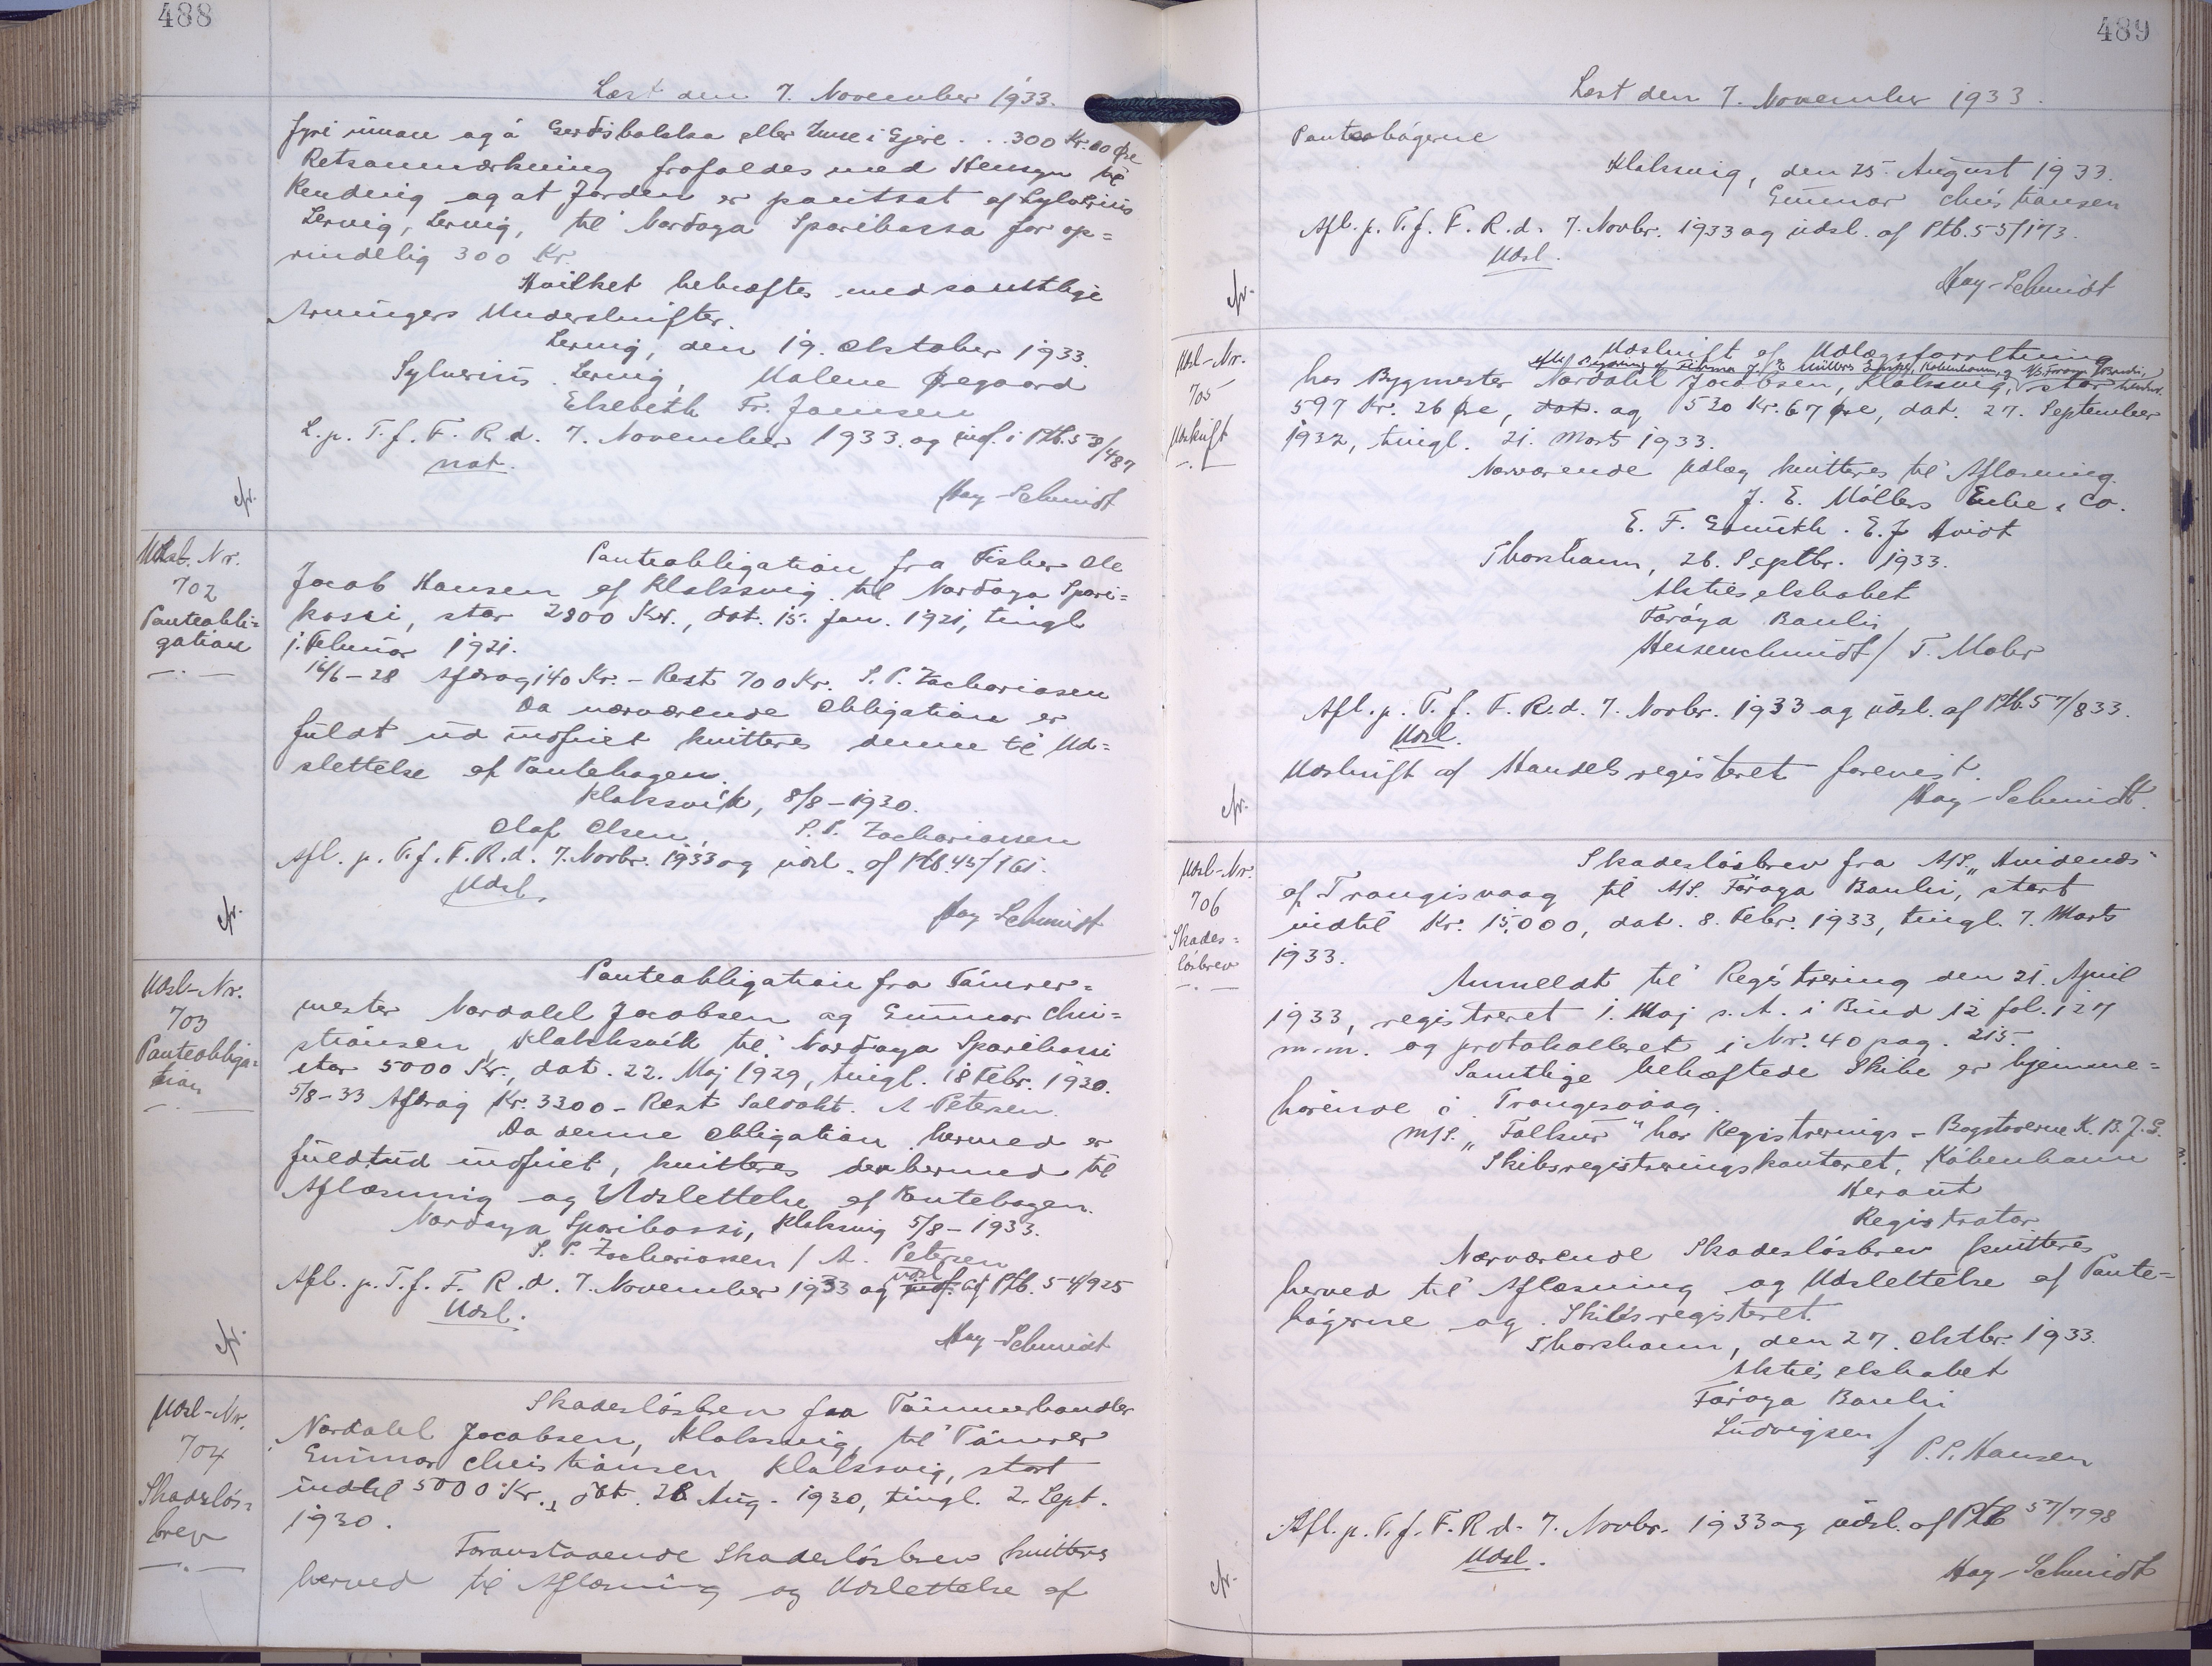 488
Læst den 7. November 1933.
fyri innan og á Gerdisbakka eller Inni i Gjere . . 300 Kr. 00 Øre
Retsanmærkning frafaldes med Hensyn til
Kending og at Jorden er pantsat af Sylverius
Lervig, Lervig, til Nordoya Sparikassa for op=
rindelig 300 Kr.
Hvilket bekræftes med samtlige
Arvingers Underskrifter.
Lervig, den 19. Oktober 1933.
Sylverius Lervig, Malene Øregaard
Elsebeth Fr. Joensen
L. p. T. f. F. R. d. 7. November 1933. og indf. i Ptb. 58/487
not.
Hay-Schmidt
cfr.
Udsl-Nr.
702
Panteobli=
gation
Panteobligation fra Fisker Ole
Jacob Hansen af Klaksvig til Nordoya Spari=
kassi, stor 2800 Kr., dat. 15. Jan. 1921, tingl.
1. Februar 1921.
16/6-28 Afdrag 140 Kr. - Rest 700 Kr. S. P. Zachariasen
Da nærværende Obligation er
fuldt ud indfriet kvitteres denne til Ud=
slettelse af Pantebogen.
Klaksvik, 8/8-1930.
Olaf Olsen, S. P. Zachariasen
Afl. p. T. f. F. R. d. 7. Novbr. 1933 og udsl. af Ptb. 45/161.
Udsl.
Hay-Schmidt
cfr.
Udsl-Nr.
703
Panteobliga=
tion
Panteobligation fra Tømrer=
mester Nordahl Jacobsen og Gunnar Chri=
stiansen, Klakksvík til Nordoya Sparikassi
stor 5000 Kr., dat. 22. Maj 1929, tingl. 18 Febr. 1930.
5/8-33 Afdrag Kr. 3300 - Rest Saldokt. A Petersen.
Da denne Obligation hermed er
fuldtud indfriet, kvitteres den hermed til
Aflæsning og Udslettelse af Pantebogen.
Nordoya Sparikassi, Klaksvig 5/8-1933.
S. P. Zachariasen / A. Petersen
Afl. p. T. f. F. R. d. 7. November 1933 og udsl. af Ptb. 54/925
Udsl.
Hay-Schmidt
cfr.
Udsl-Nr.
704
Skadesløs=
brev
Skadesløsbrev fra Tømmerhandler
Nordahl Jacobsen, Klaksvig, til Tømrer
Gunnar Christiansen Klaksvig, stort
indtil 5000 Kr., dat. 28 Aug. 1930, tingl. 2. Sept.
1930.
Foranstaaende Skadesløsbrev kvitteres
herved til Aflæsning og Udslettelse af
489
Læst den 7. November 1933.
Pantebøgerne
Klaksvig, den 25. August 1933.
Gunnar Christiansen
Afl. p. T. f. F. R. d. 7. Novbr. 1933 og udsl. af Ptb. 55/173.
Udsl.
Hay-Schmidt
cfr.
Udsl-Nr.
705
Udskrift
Udskrift af Udlægsforretning
efter Begæring af Firma J. E. Müllers Enke, København, og A/S Føroya Banki,
hos Bygmester Nordahl Jacobsen, Klaksvig, stor henhv.
597 Kr. 26 Øre, dat. og 530 Kr. 67 Øre, dat. 27. September
1932, tingl. 21. Marts 1933.
Nærværende Udlæg kvitteres til Aflæsning.
J. E. Müllers Enke & Co.
E. F. E. J. Hvidt
Thorshavn, 26. Septbr. 1933.
Aktieselskabet
Føroya Banki
Hessenschmidt / T. Mohr
Afl. p. T. f. F. R. d. 7. Novbr. 1933 og udsl. af Ptb. 57/833.
Udsl.
Udskrift af Handelsregisteret forevist.
Hay-Schmidt.
cfr.
Udsl-Nr.
706
Skades=
løsbrev
Skadesløsbrev fra A/S. „Hvidenæs"
af Trangisvaag til A/S. Føroya Banki, stort
indtil Kr. 15.000, dat. 8. Febr. 1933, tingl. 7. Marts
1933.
Anmeldt til Registrering den 21. April
1933, registreret 1. Maj s. A. i Bind 12 fol. 127
m.m. og protokolleret i Nr. 40 pag. 215.
Samtlige behæftede Skibe er hjemme=
hørende i Trangisvaag.
M/S. „Falkur" har Registrerings-Bogstaverne K. B. J. G.
Skibsregistreringskontoret, København
Registrator
Nærværende Skadesløsbrev kvitteres
herved til Aflæsning og Udslettelse af Pante=
bøgerne og Skibsregisteret.
Thorshavn, den 27. Oktbr. 1933.
Aktieselskabet
Føroya Banki
Ludvigsen / P. P. Hansen
Afl. p. T. f. F. R. d. 7. Novbr. 1933 og udsl. af Ptb 57/798
Udsl.
Hay-Schmidt
cfr.